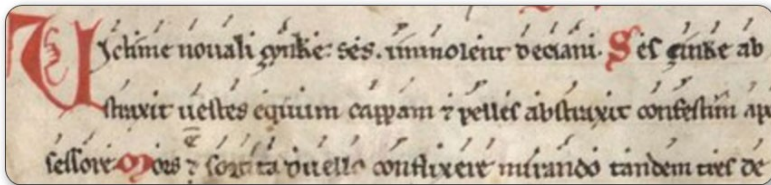 Victime nouali çynke ses. immolent deciani. Ses çinke ab
straxit uestes equum cappam ⁊ pelles abstraxit confestim
sessore. Mors ⁊ sortita duello conflixere mirando tandem tres de